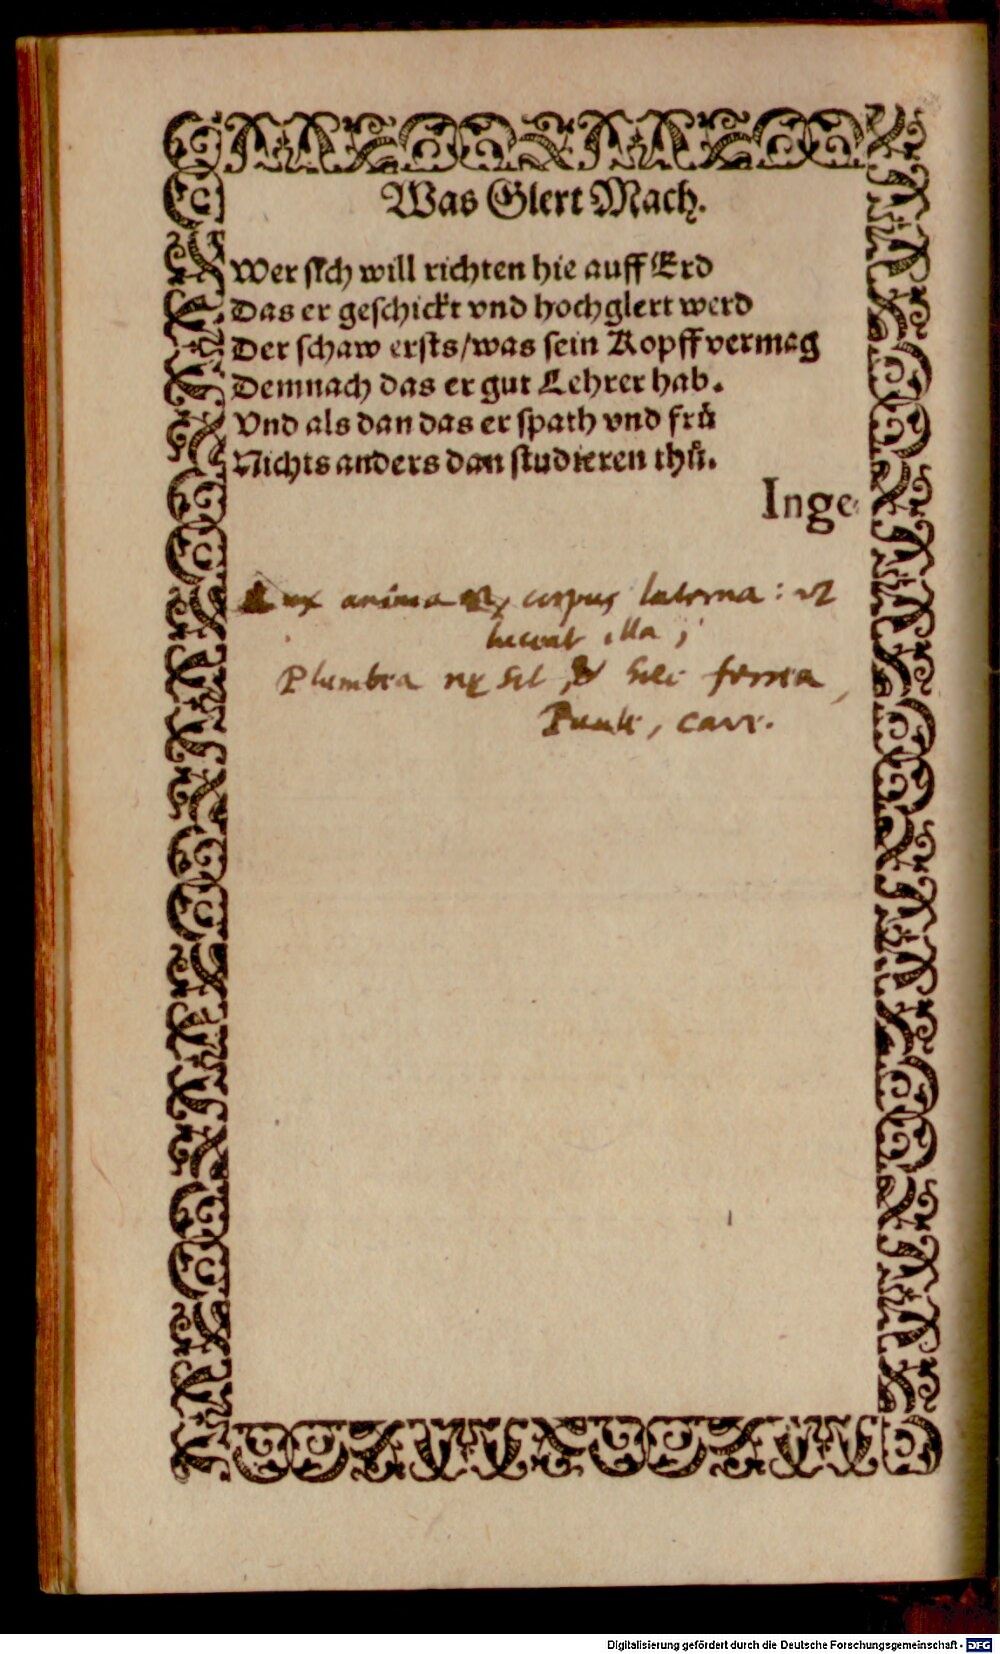 Was Glert Mach.
Wer sich will richten hie auff Erd
Das er geschickt vnd hochglert werd
Der schaw ersts/was sein Kopff vermag
Demnach das er gut Lehrer hab.
Vnd als dan das er spath vnd frů
Nichts anders dan studieren thů.
Inge
anima corpus laterna: vt
luceat illa,
Plumbea sit, & ferrea,
Paule, cave.
Digitalisierung gefördert durch die Deutsche Forschungsgemeinschaft - DFG